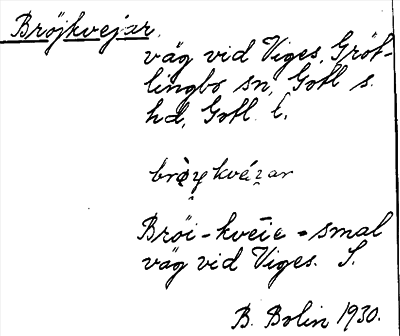 Bröjkvejar.
väg vid Viges, Gröt-
lingbo sn, Gotl s.
hd, Gotl. l.
Bröi-kveie = smal
väg vid Viges. S.
B. Bolin 1930.